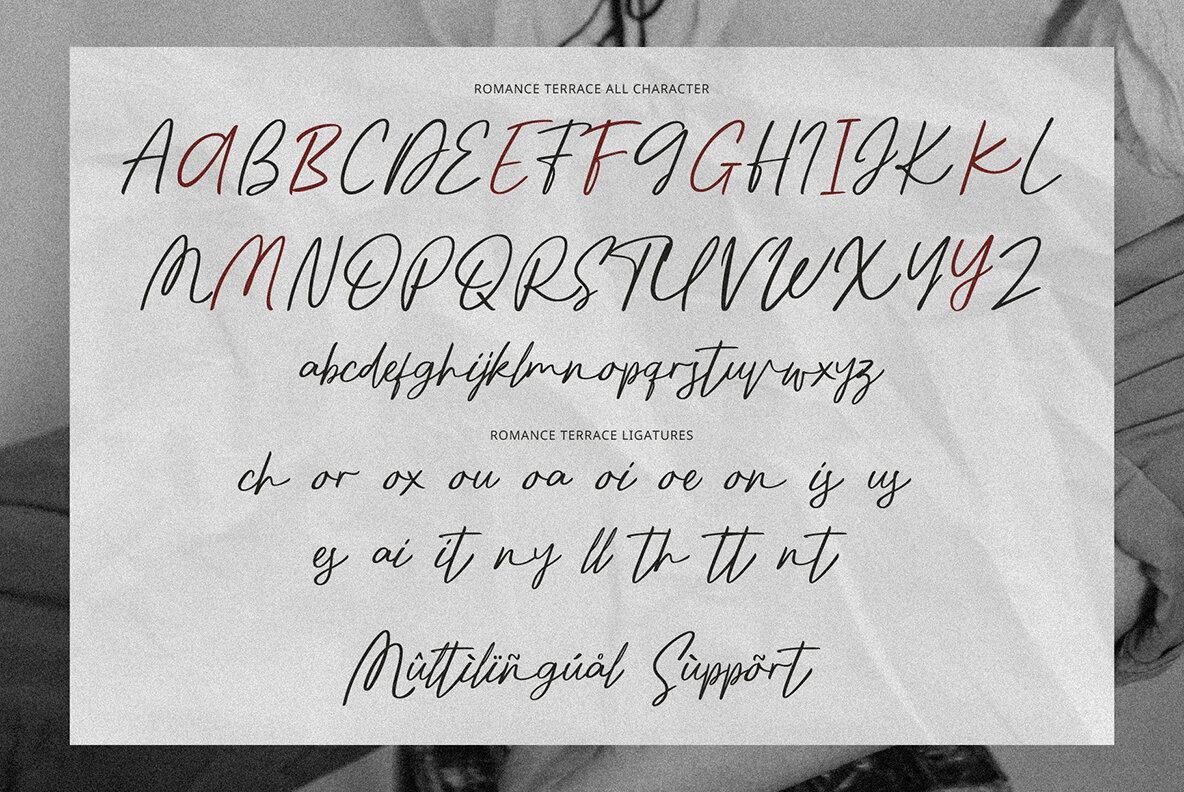 ROMANCE TERRACE ALL CHARACTER
AABBCDEEFFGGHIIJKKL
MMNOPQRSTUVWXYYZ
abcdefghijklmnopqrstuvwxyz
ROMANCE TERRACE LIGATURES
ch or ox ou oa oi oe on is us
es ai it ny ll th tt nt
Mûltìlïñgúål Sùppõrt